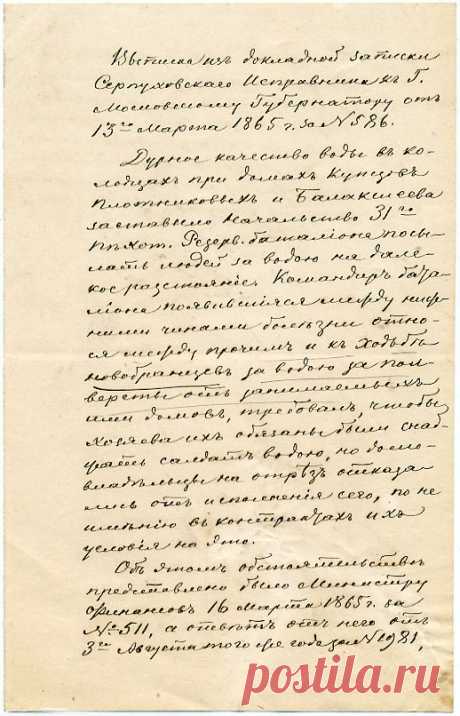 Выписка изъ докладной записки
Серпуховскаго Исправника къ Г.
Московскому Губернатору отъ
13го Марта 1865 г. за № 586.
Дурное качество воды въ ко-
лодцахъ при домахъ Купцовъ
Плотниковыхъ и Балакшеева
заставило Начальство 31го
Пѣхот. Резерв. баталіона посы-
лать людей за водою на дале-
кое разстояніе. Командиръ бата-
ліона появившіяся между ниж-
ними чинами болѣзни относ-
я между прочимъ и къ ходьбѣ
новобранцевъ за водою за пол-
версты отъ занимаемыхъ
ими домовъ, требовалъ, чтобы
хозяева ихъ обязаны были снаб-
жать солдатъ водою, но домо-
владѣльцы на отрѣзъ отказа-
лись отъ исполненія сего, по не
имѣнію въ контрактахъ ихъ
условія на это.
Объ этомъ обстоятельствѣ
представлено было Министру
Финансовъ 16 Марта 1865 г. за
№ 511, а отвѣтъ отъ него отъ
3го Августа того же года за № 1981,
postila.ru